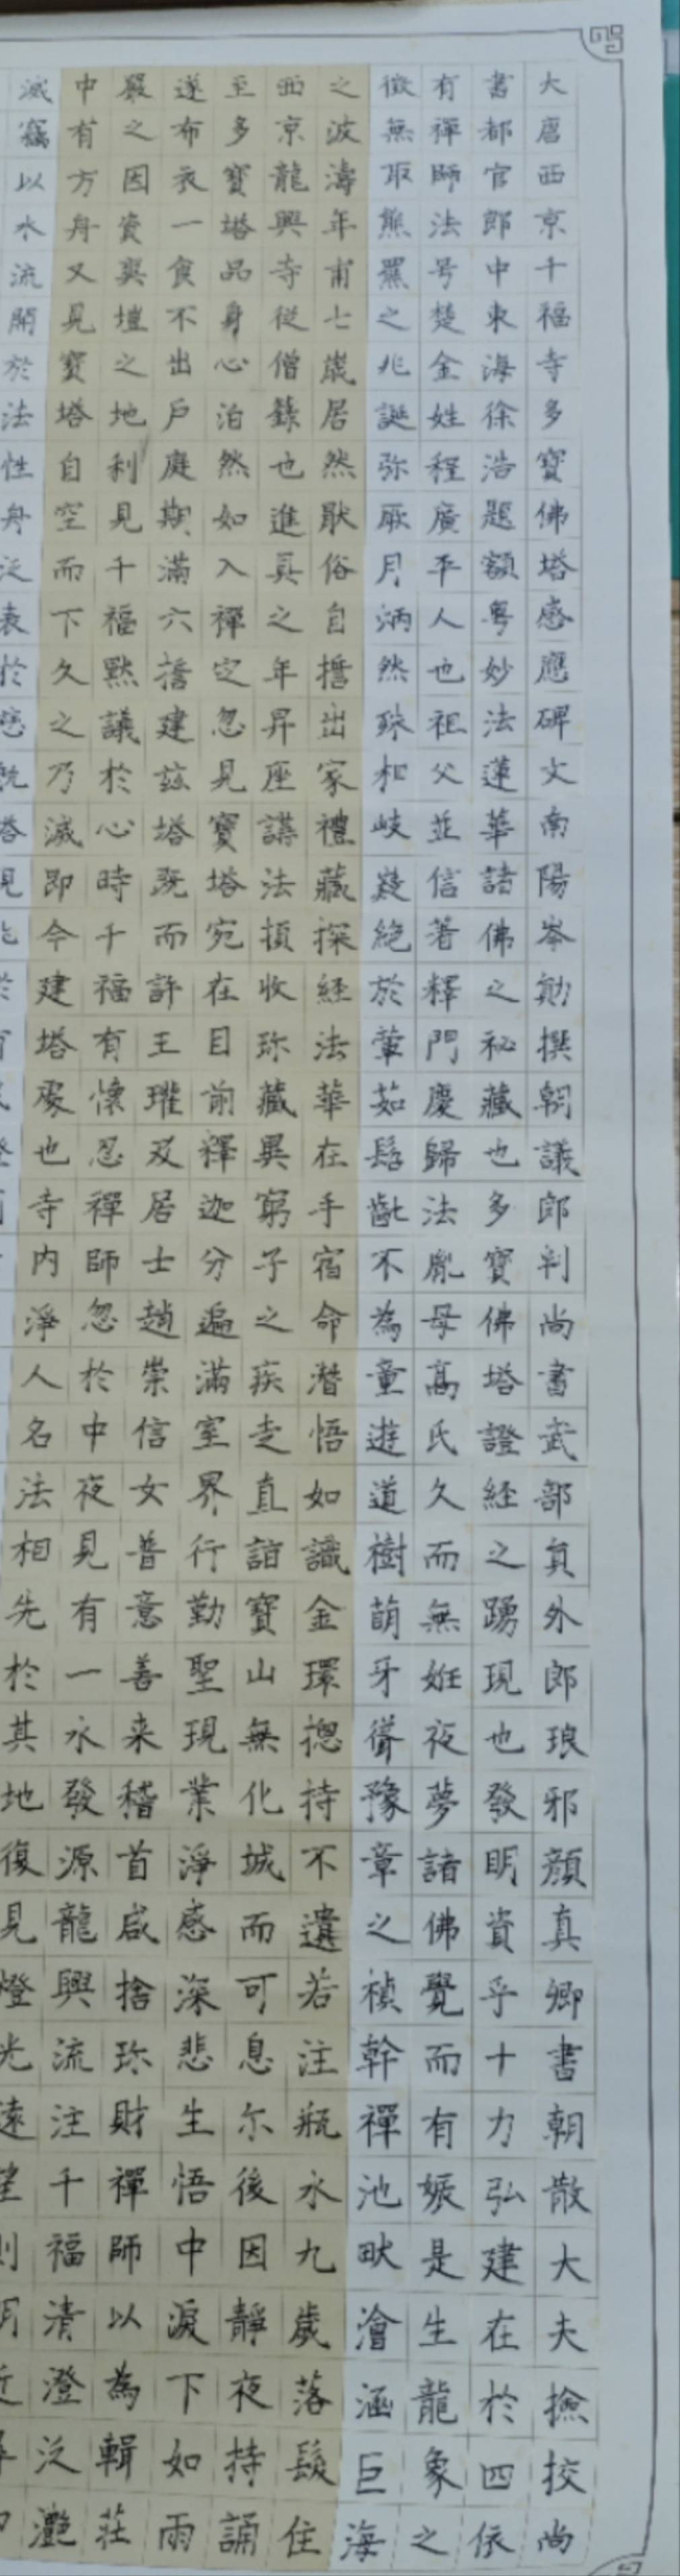 大唐西京千福寺多寶佛塔感應碑文南陽岑勛撰朝議郎判尚書武部負外郎琅邪顏真卿書朝散大夫撿挍尚
書都官郎中東海徐浩題額粤妙法蓮華諸佛之祕藏也多寶佛塔證經之踴現也發明資乎十力弘建在於四依
有禪師法号楚金姓程廣平人也祖父並信著釋門慶歸法胤母高氏久而無姙夜夢諸佛覺而有娠是生龍象之
徵無取熊羆之兆誕弥厥月炳然殊相岐嶷絕於葷茹髫齔不為童遊道樹萌牙聳豫章之楨幹禪池畎澮涵巨海
之波濤年甫七歲居然猒俗自擔出家禮藏探經法華在手宿命潛悟如識金環揔持不遺若注瓶水九歲落髮住
西京龍興寺從僧籙也進具之年昇座講法頓收珎藏異窮子之疾走直詣寶山無化城而可息尓後因靜夜持誦
至多寶塔品身心泊然如入禪定忽見寶塔宛在目前釋迦分遍滿室界行勤聖現業淨感深悲生悟中淚下如雨
遂布衣一食不出戶庭期滿六擔建茲塔既而許王瓘及居士趙崇信女普意善来稽首咸捨珎財禪師以為輯莊
嚴之因資爽塏之地利見千福默議於心時千福有懷忍禪師忽於中夜見有一水發源龍興流注千福清澄泛灧
中有方舟又見寶塔自空而下久之乃滅即今建塔處也寺內淨人名法相先於其地復見燈光遠望則明近尋即
滅竊以水流開於法性舟泛表於